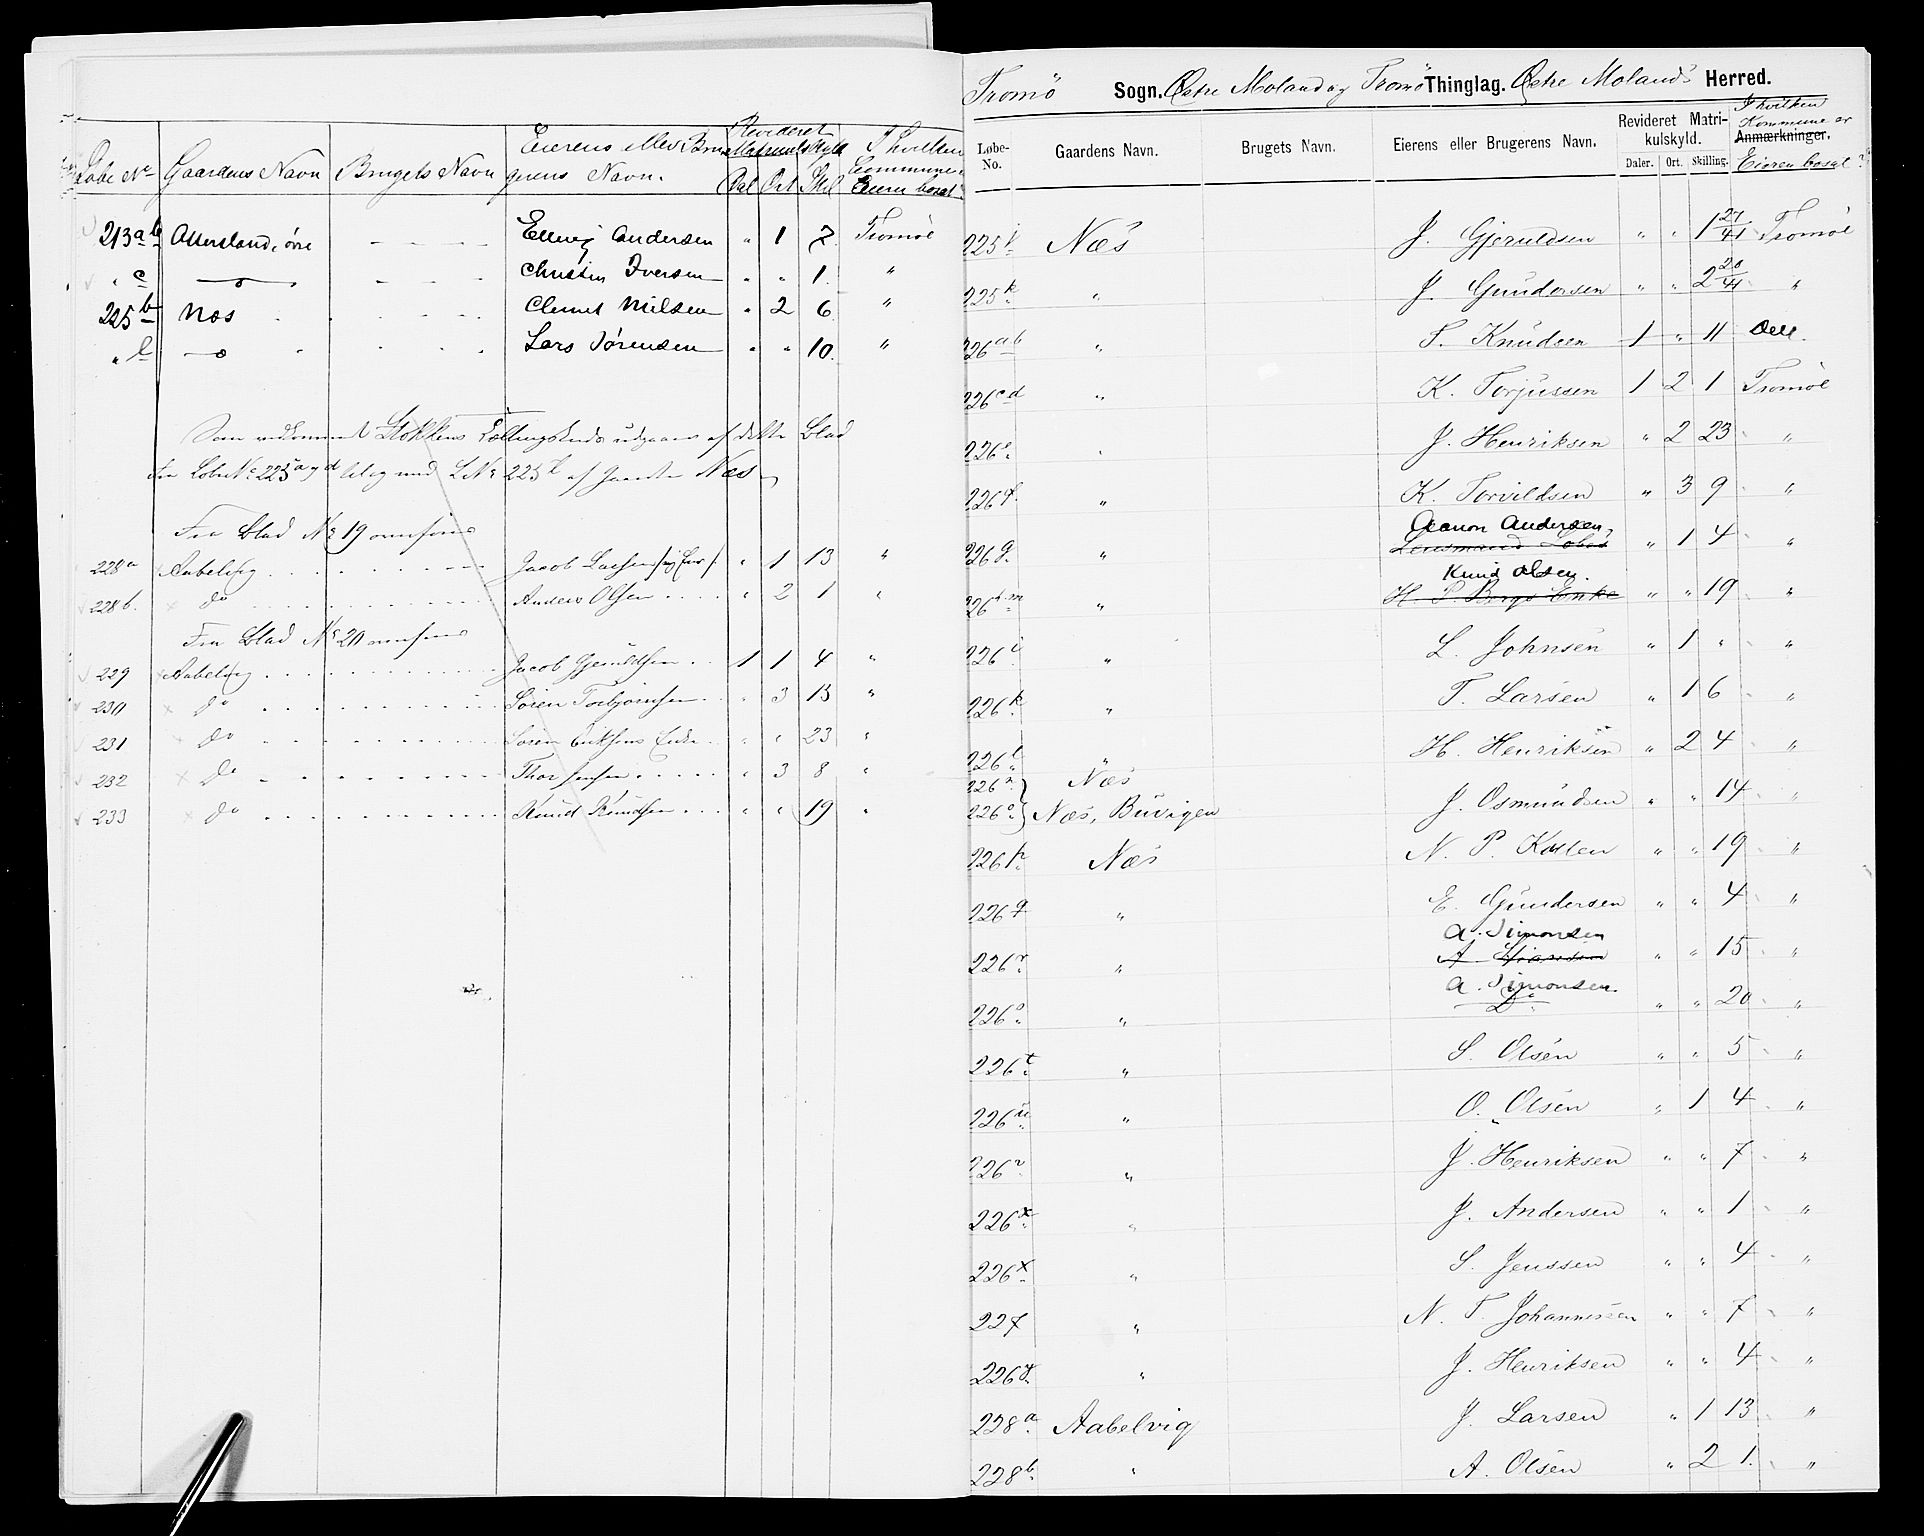 Løbe No Gaardens Navn Brugets Navn Eierens eller Bru- gerens Navn. Revideret Matrikulskyld Dal Ort Skil I hvilken Kommune er Eieren bosat
213 a b Alversland, øvre - - - - Ellevij Andersen " 1 7 Tromøe
" c - o - - - - - Christen Iversen " " 1. "
225 b Nœs - - - - Clemet Nilsen " 2 6 "
" l - o - - - - Lars Sørensen " " 10. "
Som vedkommer Stokkens udgaar af dette Blad
fra Løbe No 225 a og d tilog med LNo 225 af Gaarden Næs
Fra Blad No 19 overføres
228a Aabelvig Jacob Larsen " 1 13 "
228b. do Anders Olsen " 2 1 "
Fra Blad No 20 overføres
229 Aabelvig Jacob Gjeruldsen 1 1 4 "
230 do Søren Torbjørnsen " 3 13 "
231 do Søren Eriksens Enke " " 23 "
232 do Thor Jensen " 3 8 "
233 do Knud Knudsen " " 19 "
Tromö Sogn. Østre Moland og Tromö Thinglag. Østre Molands Herred.
Løbe-No. Gaardens Navn. Brugets Navn. Eierens eller Brugerens Navn. Revideret Matri-kulskyld. Daler. Ort. Skilling. Anmærkninger. I hvilken Kommune er Eieren bosat?
225 i Næs J. Gjeruldsen " " 1 27/41 Tromöe
225 k " J. Gundersen " " 2 20/41 "
226 ab " S. Knudsen 1 " 11 Dele.
226 cd " K. Torjussen 1 2 1 Tromöe
226 e " J. Henriksen " 2 23 "
226 f. " K. Torvildsen " 3 9 "
Aanon Andersen
226 g. " Lensmand Lobes " 1 4 "
Knud Olsen.
226 h.m " H. P. Bergs Enke " " 19 "
226 i " L. Johnsen " 1 " "
226 k " T. Larsen " 1 6 "
226 l " H. Henriksen " 2 4 "
226 n Næs
226 o Næs, Buvigen J. Osmundsen " " 14 "
226 p Næs N. P. Kallen " " 19 "
226 q " E. Gundersen " " 4 "
A. Simonsen
226 r " " " 15 "
A. Simonsen.
226 s " Do " " 20 "
226 t " S. Olsen " " 5 "
226 u " O. Olsen " 1 4 "
226 v " J. Henriksen " " 7 "
226 x " J. Andersen " " 1 "
226 x " S. Jenssen " " 4 "
227 " N. T. Johannesen " " 7 "
226 y. " J. Henriksen " " 4 "
228 a Aabelvig J. Larsen " 1 13 "
228 b " A. Olsen " 2 1. "